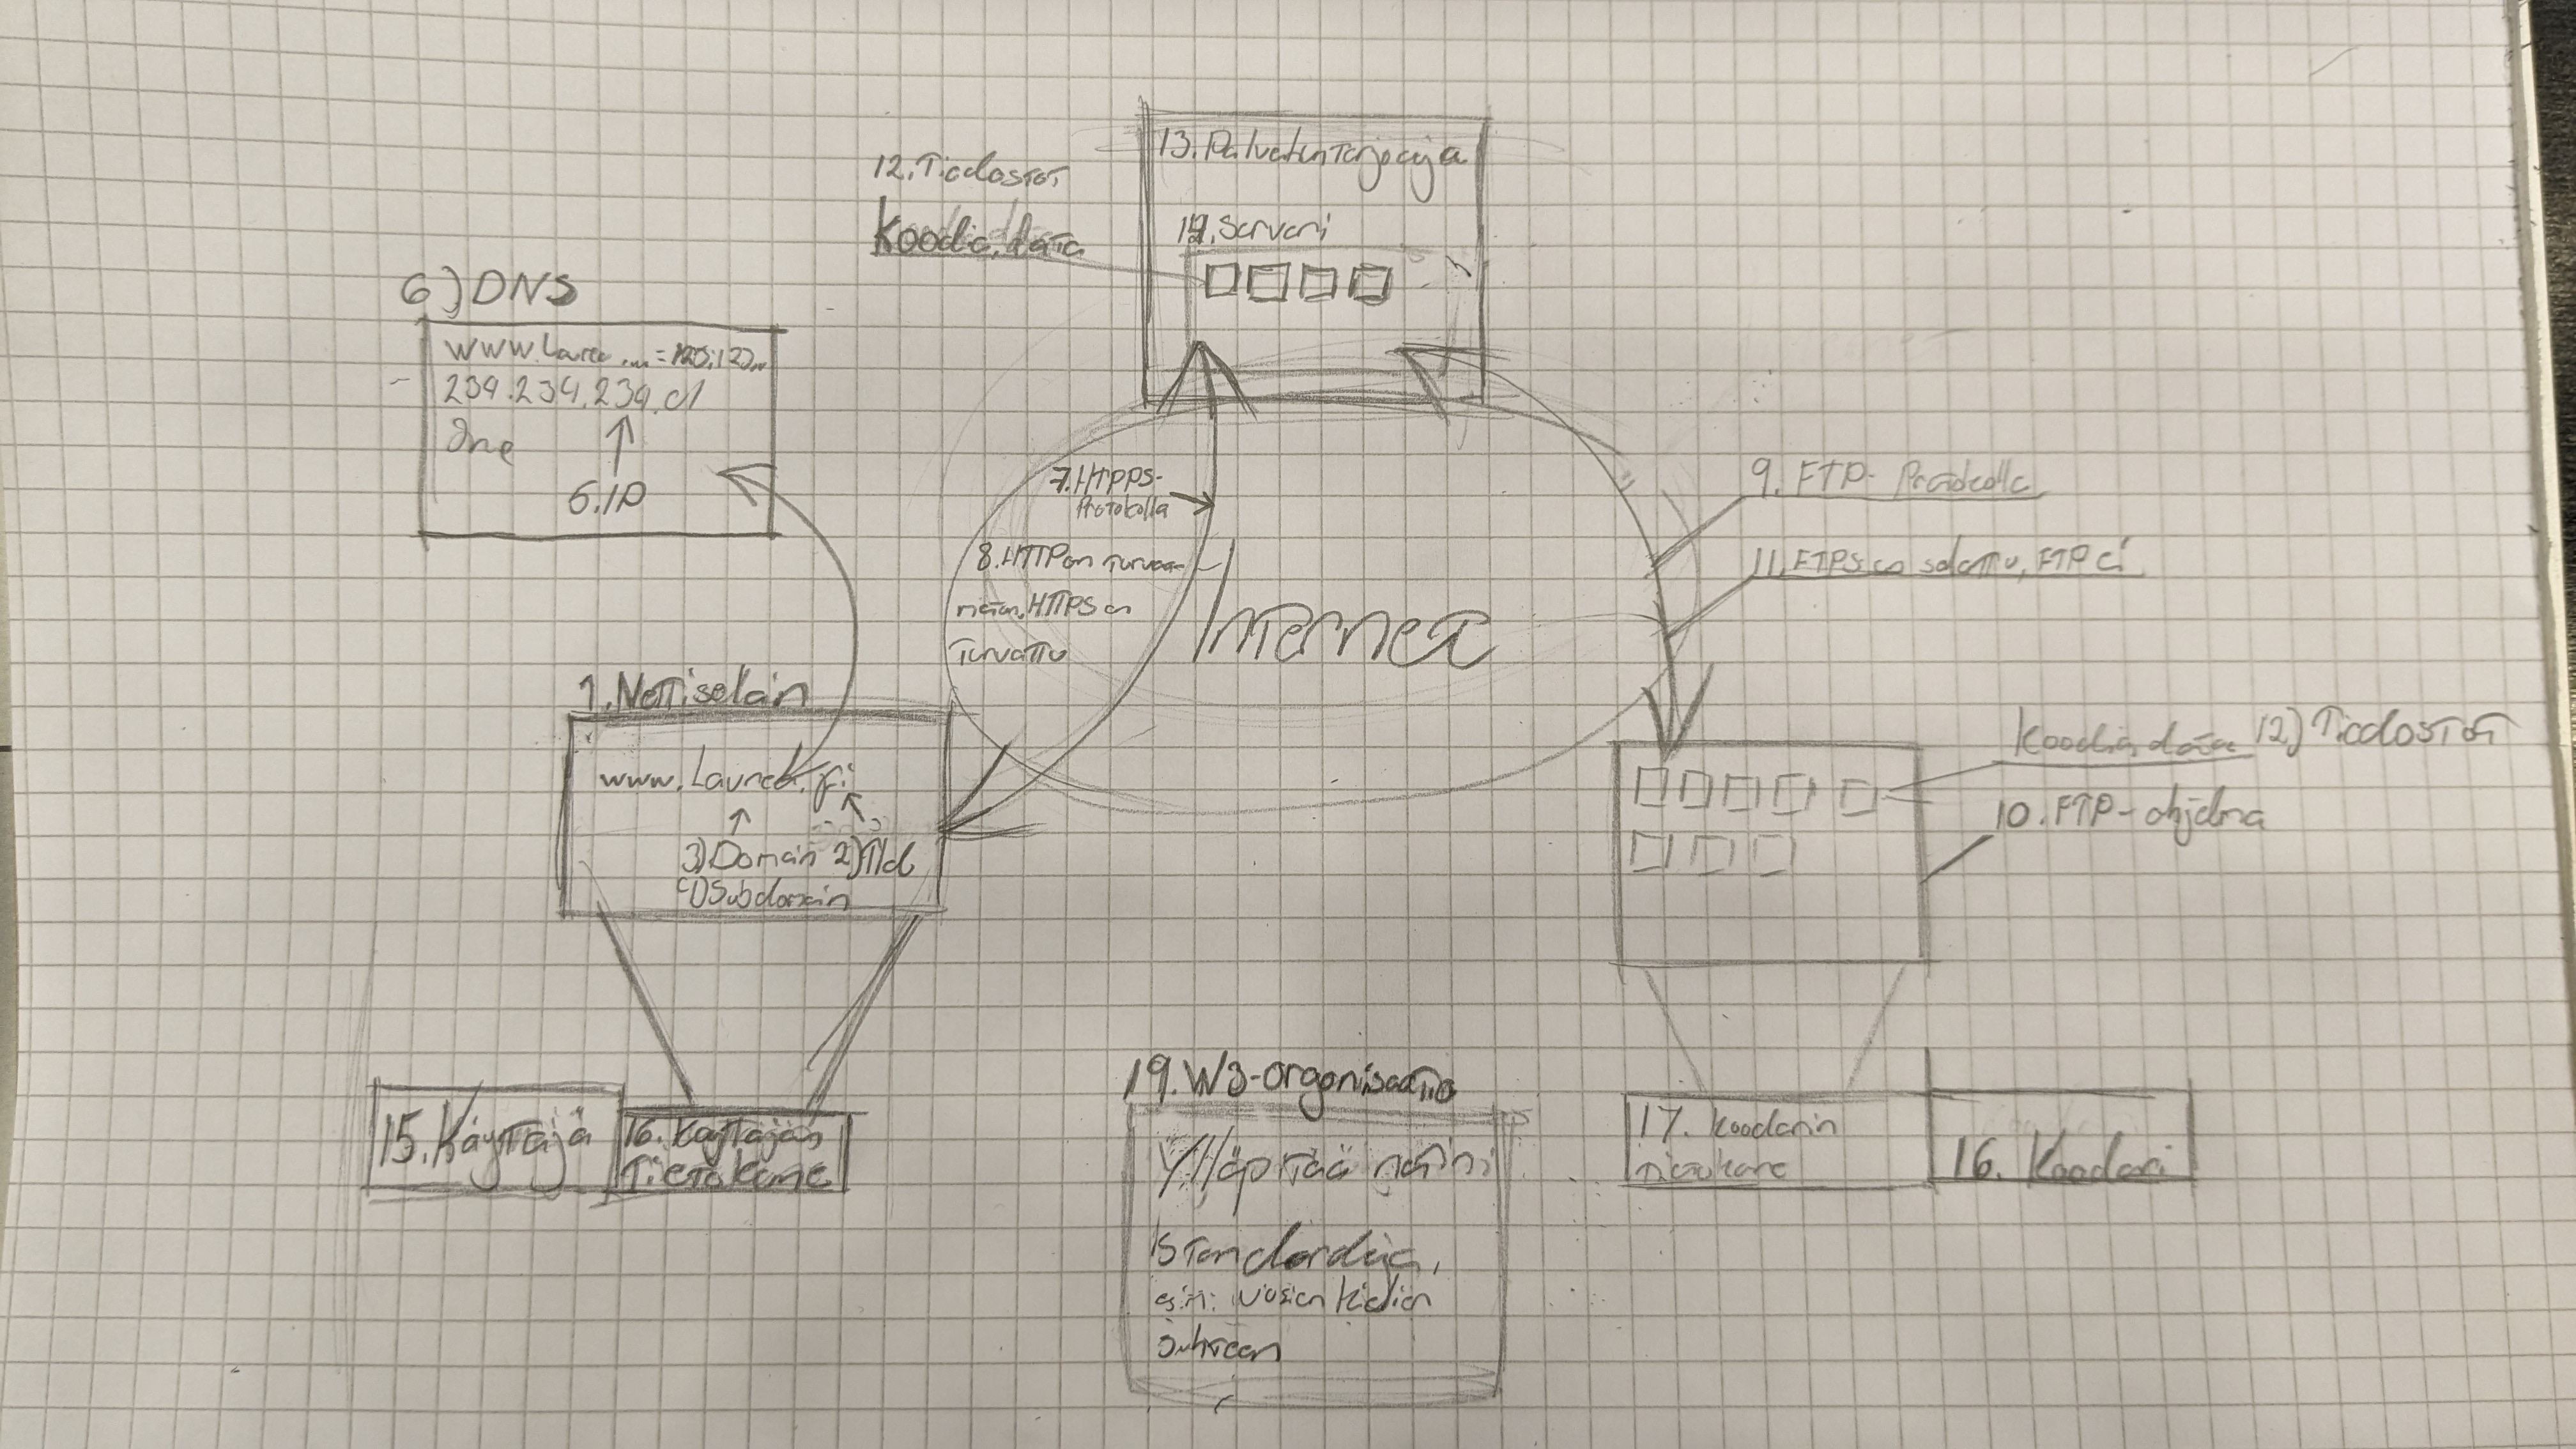 13. Palveluntarjoaja
12. Tiedostot
Koodia, data
14. Serveri
6) DNS
www.Laurea....=123.123...
234.234.234.d
6.IP
7. HTPPS-
Protokolla
8. HTTP on turvaa-
maton, HTTPS on
turvattu
Internet
9. FTP- Protokolla
11. FTPS on salattu, FTP ei
1. Nettiselain
www.Laurea.fi
3) Domain 2) Tld
Subdomain
Koodia, data 12) Tiedostot
10. FTP-ohjelma
15. Käyttäjä
16. Käyttäjän
Tietokone
19. W3-organisaatio
Ylläpitää netin
Standardeja,
esim:
17. Koodarin
tietokone
16. Koodari